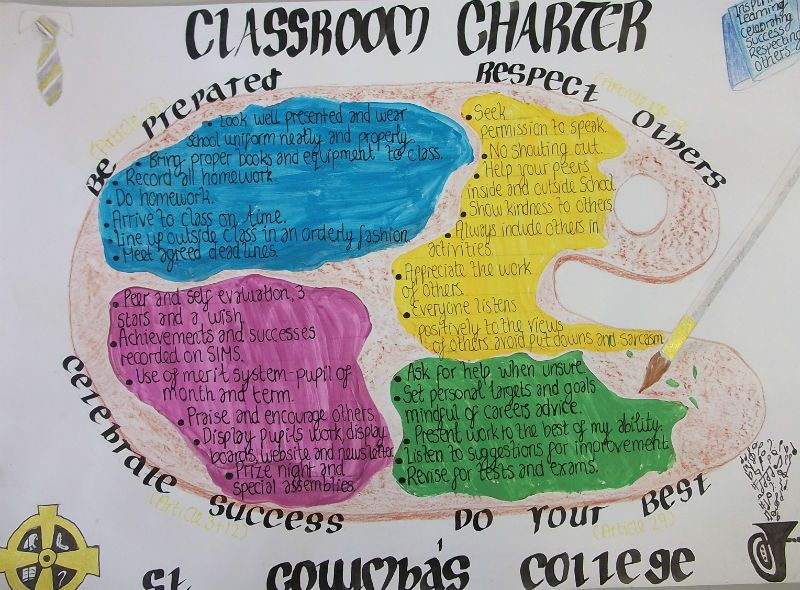 CLASSROOM CHARTER
Inspiring
Learning
celebrating
success
Respecting
others
BE PREPARED
• Look well presented and wear
school uniform neatly and properly.
• Bring proper books and equipment to class.
• Record all homework.
• Do homework.
• Arrive to class on time.
• Line up outside class in an orderly fashion.
• Meet agreed deadlines.
RESPECT OTHERS
• Seek
permission to speak.
• No shouting out.
• Help your peers
inside and outside School
• Show kindness to others
• Always include others in
activities.
• Appreciate the work
of others.
• Everyone listens
positively to the views
of others avoid put downs and sarcasm
• Peer and self evaluation, 3
stars and a wish
• Achievements and successes
recorded on SIMS.
• Use of merit system-pupil of
month and term.
• Praise and encourage others.
• Display pupils work, display
boards, website and newsletter
• Prize night and
special assemblies.
Celebrate Success
(Article 3+12)
• Ask for help when unsure.
• Set personal targets and goals
mindful of careers advice.
• Present work to the best of my ability.
• Listen to suggestions for improvement
• Revise for tests and exams.
DO YOUR BEST
(Article 29)
St Columba's College